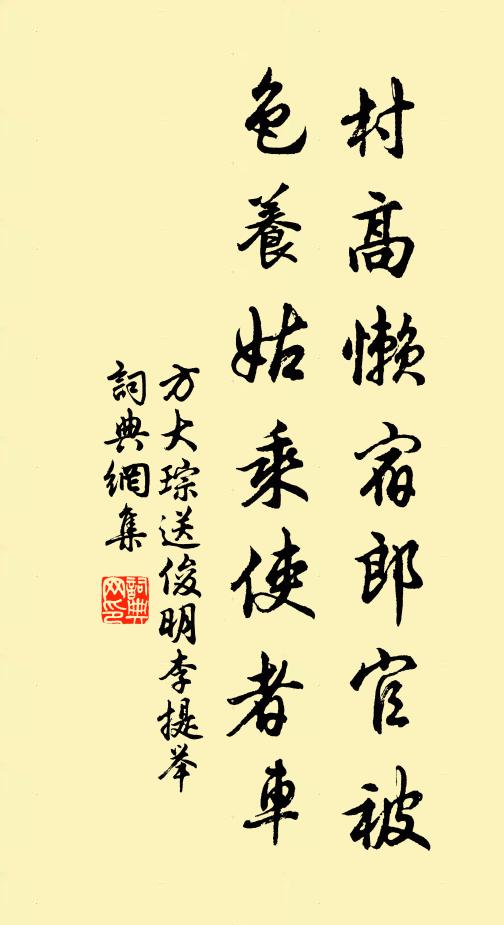 村高懒宿郎官被
色養姑乘使者車
方大琮送俊明李提举
詞典網集
詞典